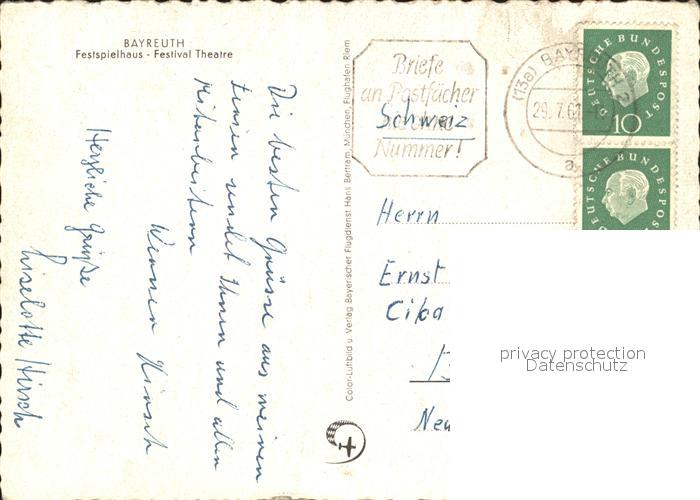 BAYREUTH
Festspielhaus - Festival Theatre
Die besten Grüsse aus meinen
Ferien sendet Ihnen und allen
Mitarbeitern
Werner Hirsch
Herzliche Grüße
Liselotte Hirsch
Color-Luftbild u. Verlag Bayerischer Flugdienst Hans Bertram, München, Flughafen Riem
Briefe
an Postfächer
Nummer!
Schweiz
(13a) BAYREUTH 2
29.7.61
a
DEUTSCHE BUNDESPOST
10
DEUTSCHE BUNDESPOST
Herrn
Ernst
Ciba
Neu
privacy protection
Datenschutz